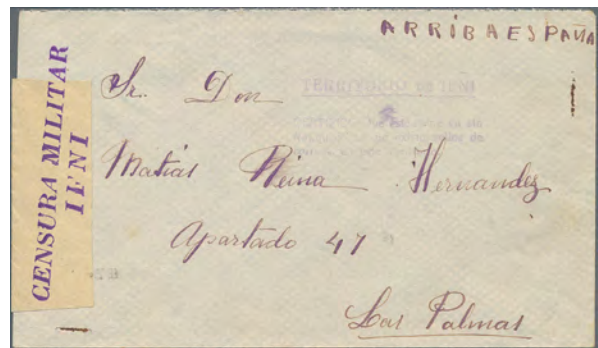 ARRIBA ESPAÑA
CENSURA MILITAR
IFNI
Sr. Don
TERRITORIO DE IFNI
Matias Reina Hernandez
Apartado 47
Las Palmas